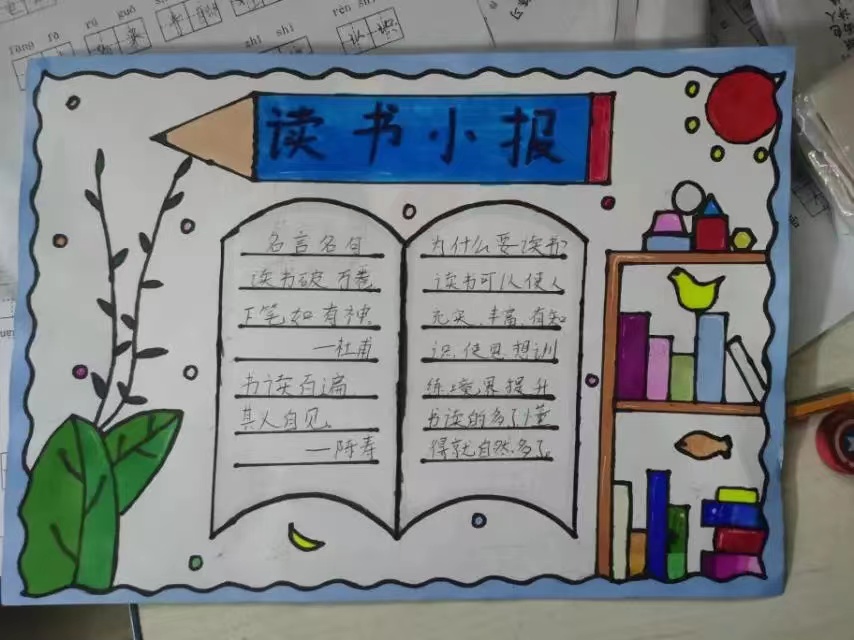 rú guǒ
rèn shi
zhǐ shì
认识
读书小报
名言名句
读书破万卷
下笔如有神。
—杜甫
书读百遍
其人自见。
—陈寿
为什么要读书?
读书可以使人
充实、丰富、有知
识,使思想训
练,境界提升
书读的多了懂
得就自然多了。